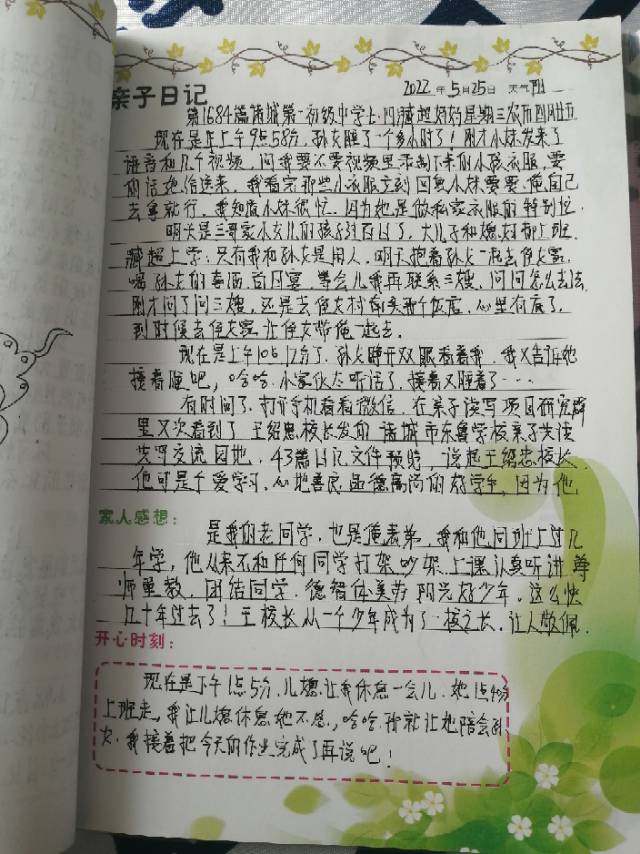 亲子日记
2022年5月25日 天气 阴
第1684篇诸城第一初级中学七.四臧超妈妈星期三农历四月廿五
现在是上午9点58分，孙女睡了一个多小时了！刚才小妹发来了
语音和几个视频，问我要不要视频里小孩衣服，要
的话她给送来，我看完那些小衣服立刻回复小妹要要，俺自己
去拿就行，我知道小妹很忙，因为她是做私家衣服的特别忙。
明天是三哥家小女儿的孩子过百日了，大儿子和媳妇都上班.
臧超上学；只有我和孙女是闲人，明天抱着孙女一起去侄女家，
喝孙女的喜酒，百日宴，等会儿我再联系三嫂，问问怎么去法.
刚才问了问三嫂，还是去侄女村南头那个饭店，心里有底了，
到时候去侄女家让侄女带俺一起去.
现在是上午10点12分了，孙女睁开双眼看着我，我又告诉她
接着睡吧，哈哈，小家伙太听话了，接着又睡着了…
有时间了，打开手机看看微信，在亲子读写项目研究群
里又次看到了王绍忠校长发的诸城市东鲁学校亲子共读
共写交流园地，43篇日记文件预览，说起王绍忠校长
他可是个爱学习，心地善良品德高尚的好学生，因为他
家人感想：
是我的老同学，也是俺表弟，我和他同班上过几
年学，他从来不和任何同学打架吵架，上课认真听讲尊
师重教，团结同学，德智体美劳阳光好少年。这么快
几十年过去了！王校长从一个少年成为了一校之长，让人敬佩.
开心时刻：
现在是下午1点5分，儿媳让我休息一会儿，她1点40分
上班走，我让儿媳休息她不愿，哈哈，那就让她陪会孙
女，我接着把今天的作业完成了再说吧！